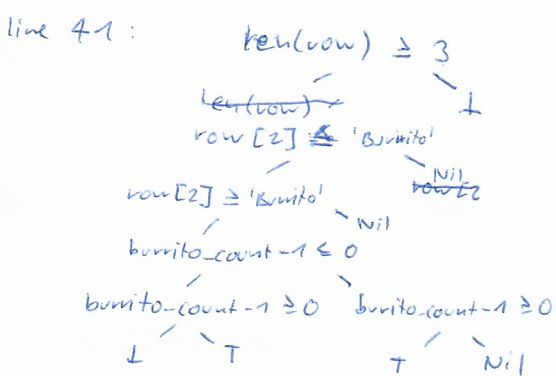 line 41:
len(row) ≥ 3
len(row) ⊥
row[2] ≤ 'Burrito'
row[2] ≥ 'Burrito' Nil
Nil
burrito_count-1 ≤ 0
burrito_count-1 ≥ 0 burrito_count-1 ≥ 0
⊥ T T Nil